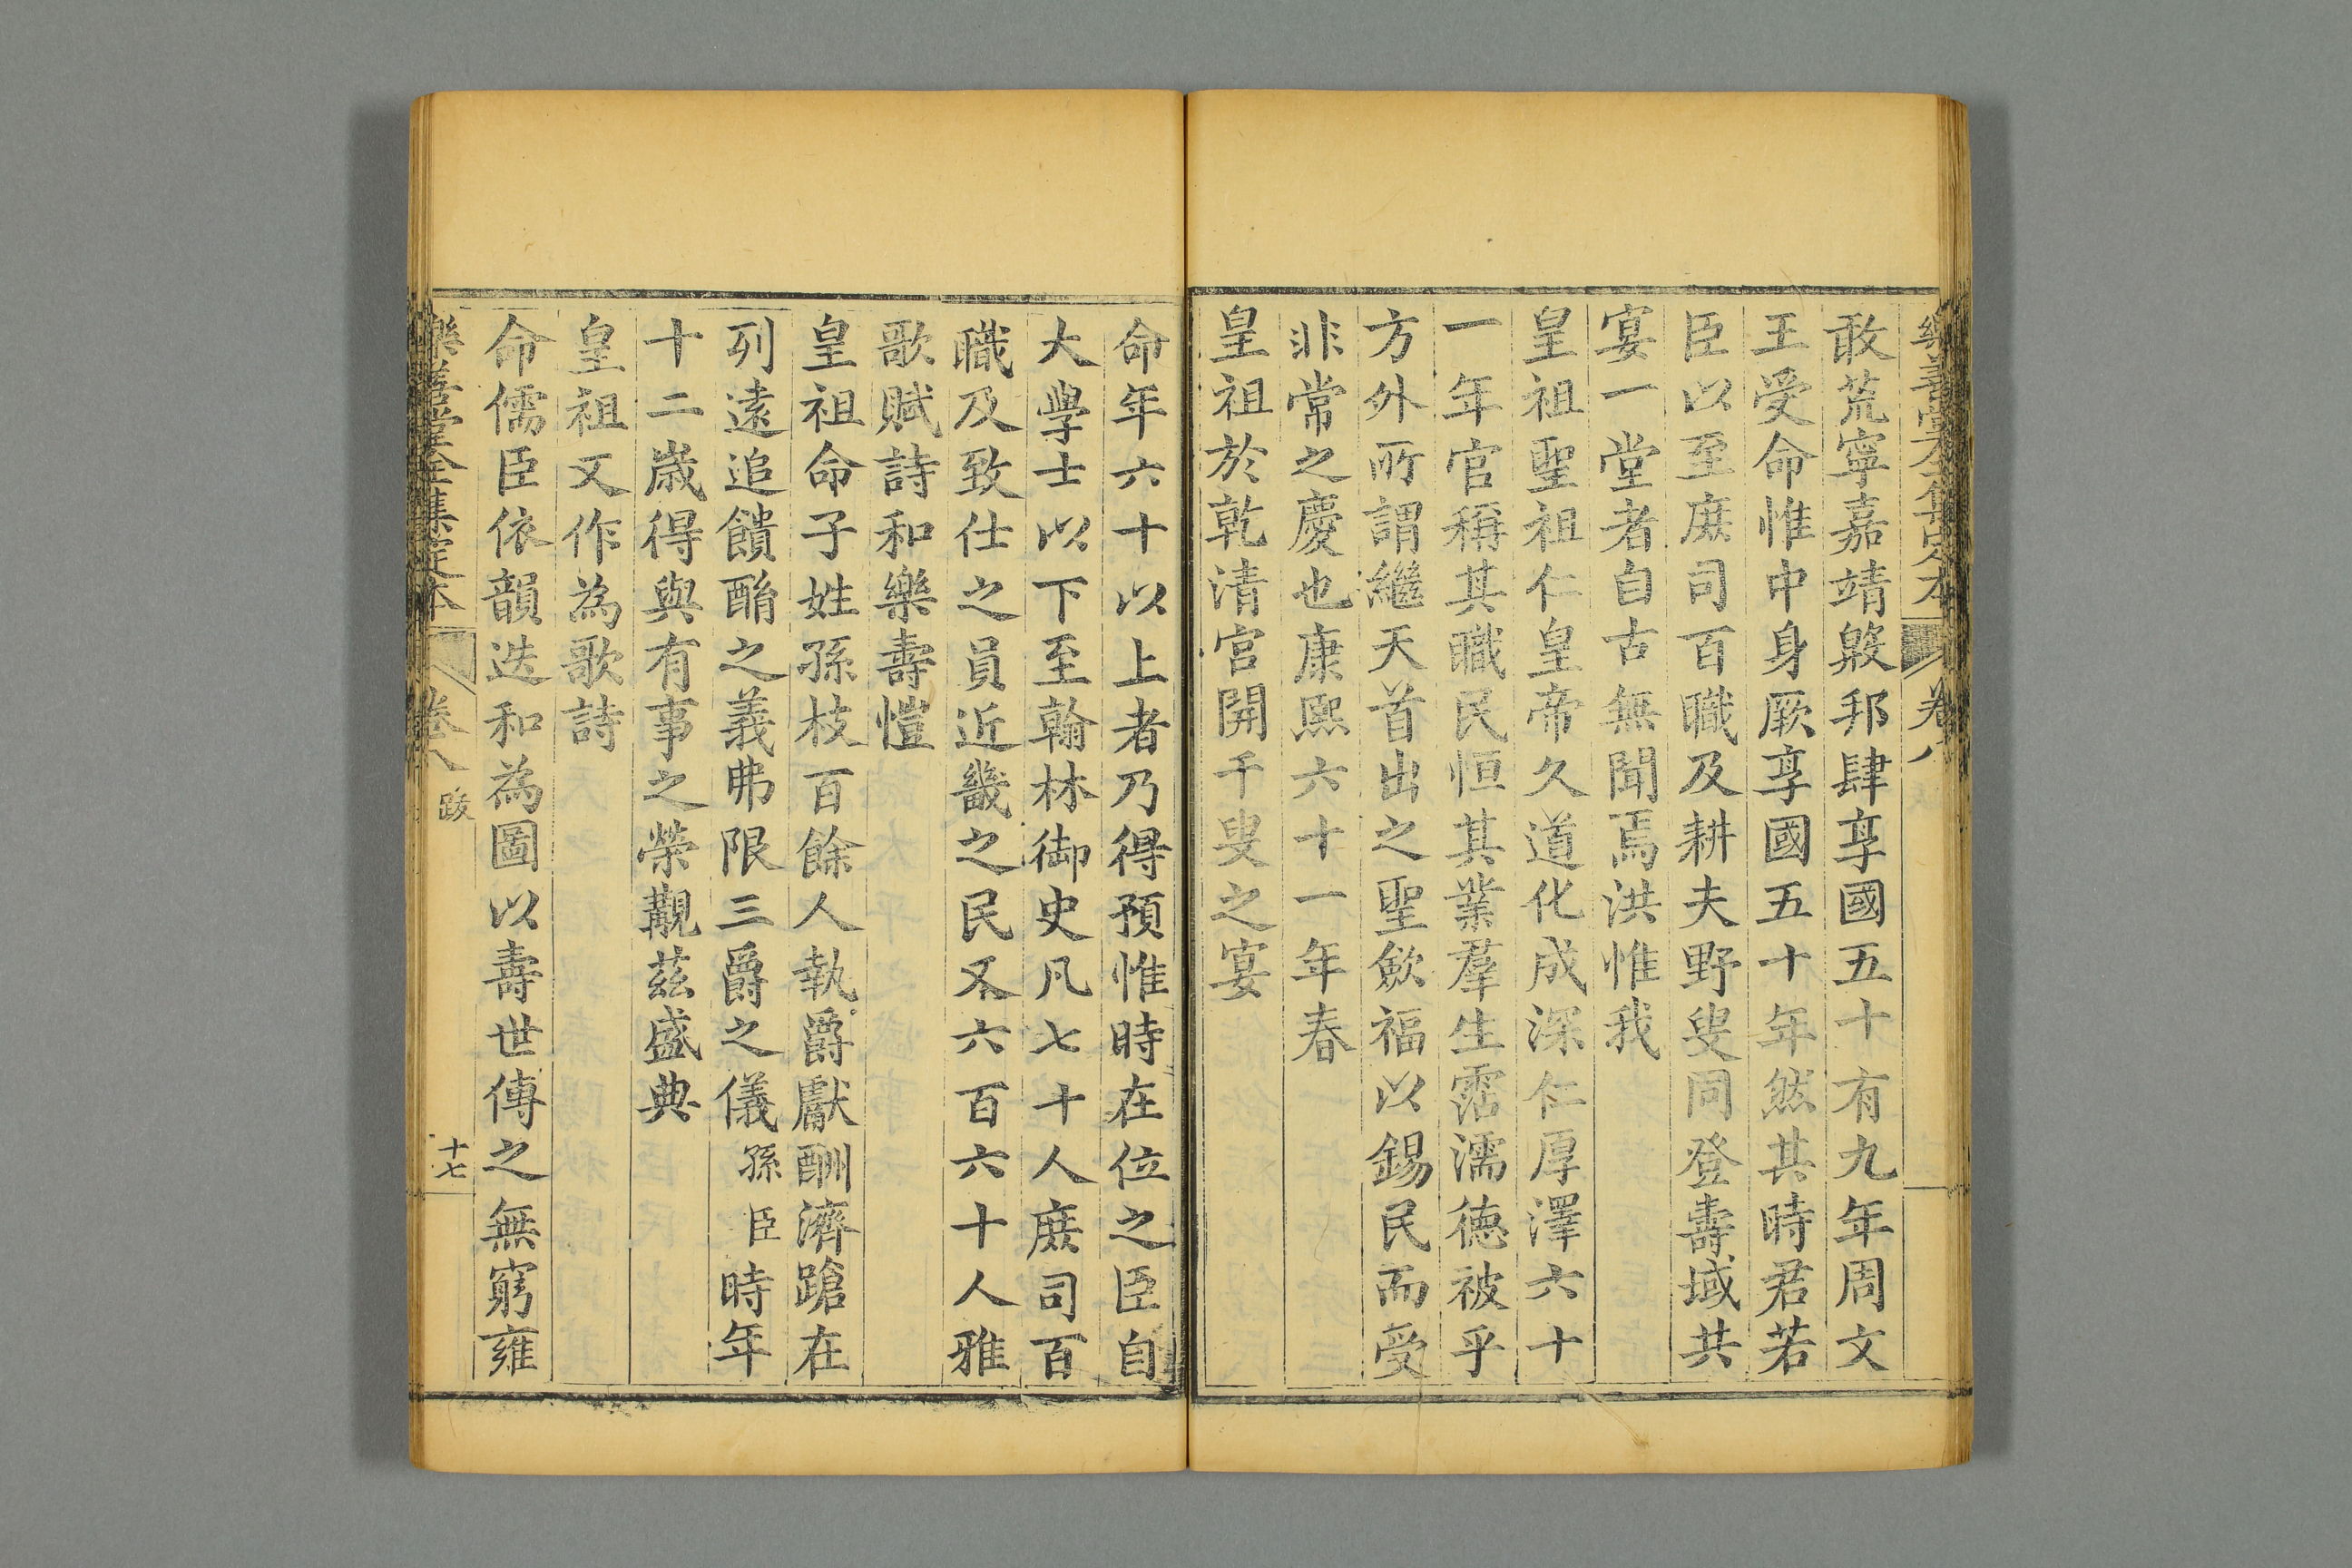 樂善堂全集定本 卷八
敢荒寧嘉靖殷邦肆享國五十有九年周文
王受命惟中身厥享國五十年然其時君若
臣以至庶司百職及耕夫野叟同登壽域共
宴一堂者自古無聞焉洪惟我
皇祖聖祖仁皇帝久道化成深仁厚澤六十
一年官稱其職民恒其業羣生霑濡德被乎
方外所謂繼天首出之聖歛福以錫民而受
非常之慶也康熙六十一年春
皇祖於乾清宮開千叟之宴
命年六十以上者乃得預惟時在位之臣自
大學士以下至翰林御史凡七十人庶司百
職及致仕之員近畿之民又六百六十人雅
歌賦詩和樂壽愷
皇祖命子姓孫枝百餘人執爵獻酬濟蹌在
列遠追饋酳之義弗限三爵之儀孫臣時年
十二歲得與有事之榮觀茲盛典
皇祖又作為歌詩
命儒臣依韻迭和為圖以壽世傳之無窮雍
樂善堂全集定本 卷八 跋 十七